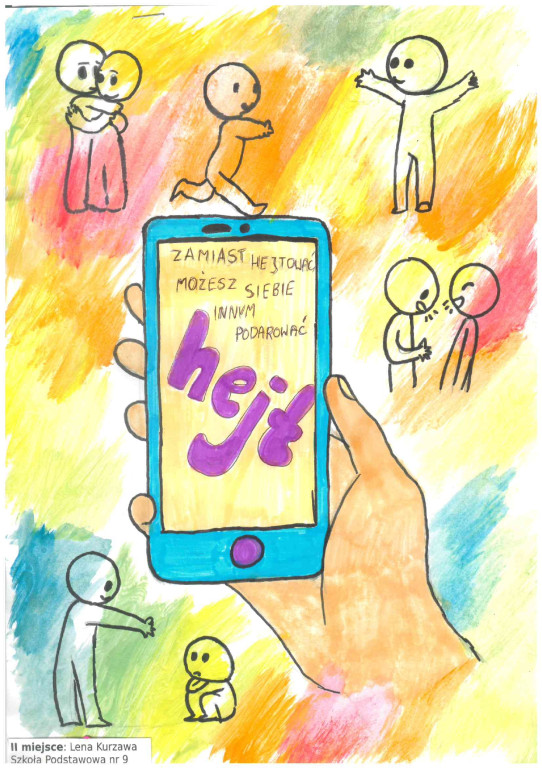 ZAMIAST HEJTOWAĆ,
MOŻESZ SIEBIE
INNYM
PODAROWAĆ
hejt
II miejsce: Lena Kurzawa
Szkoła Podstawowa nr 9